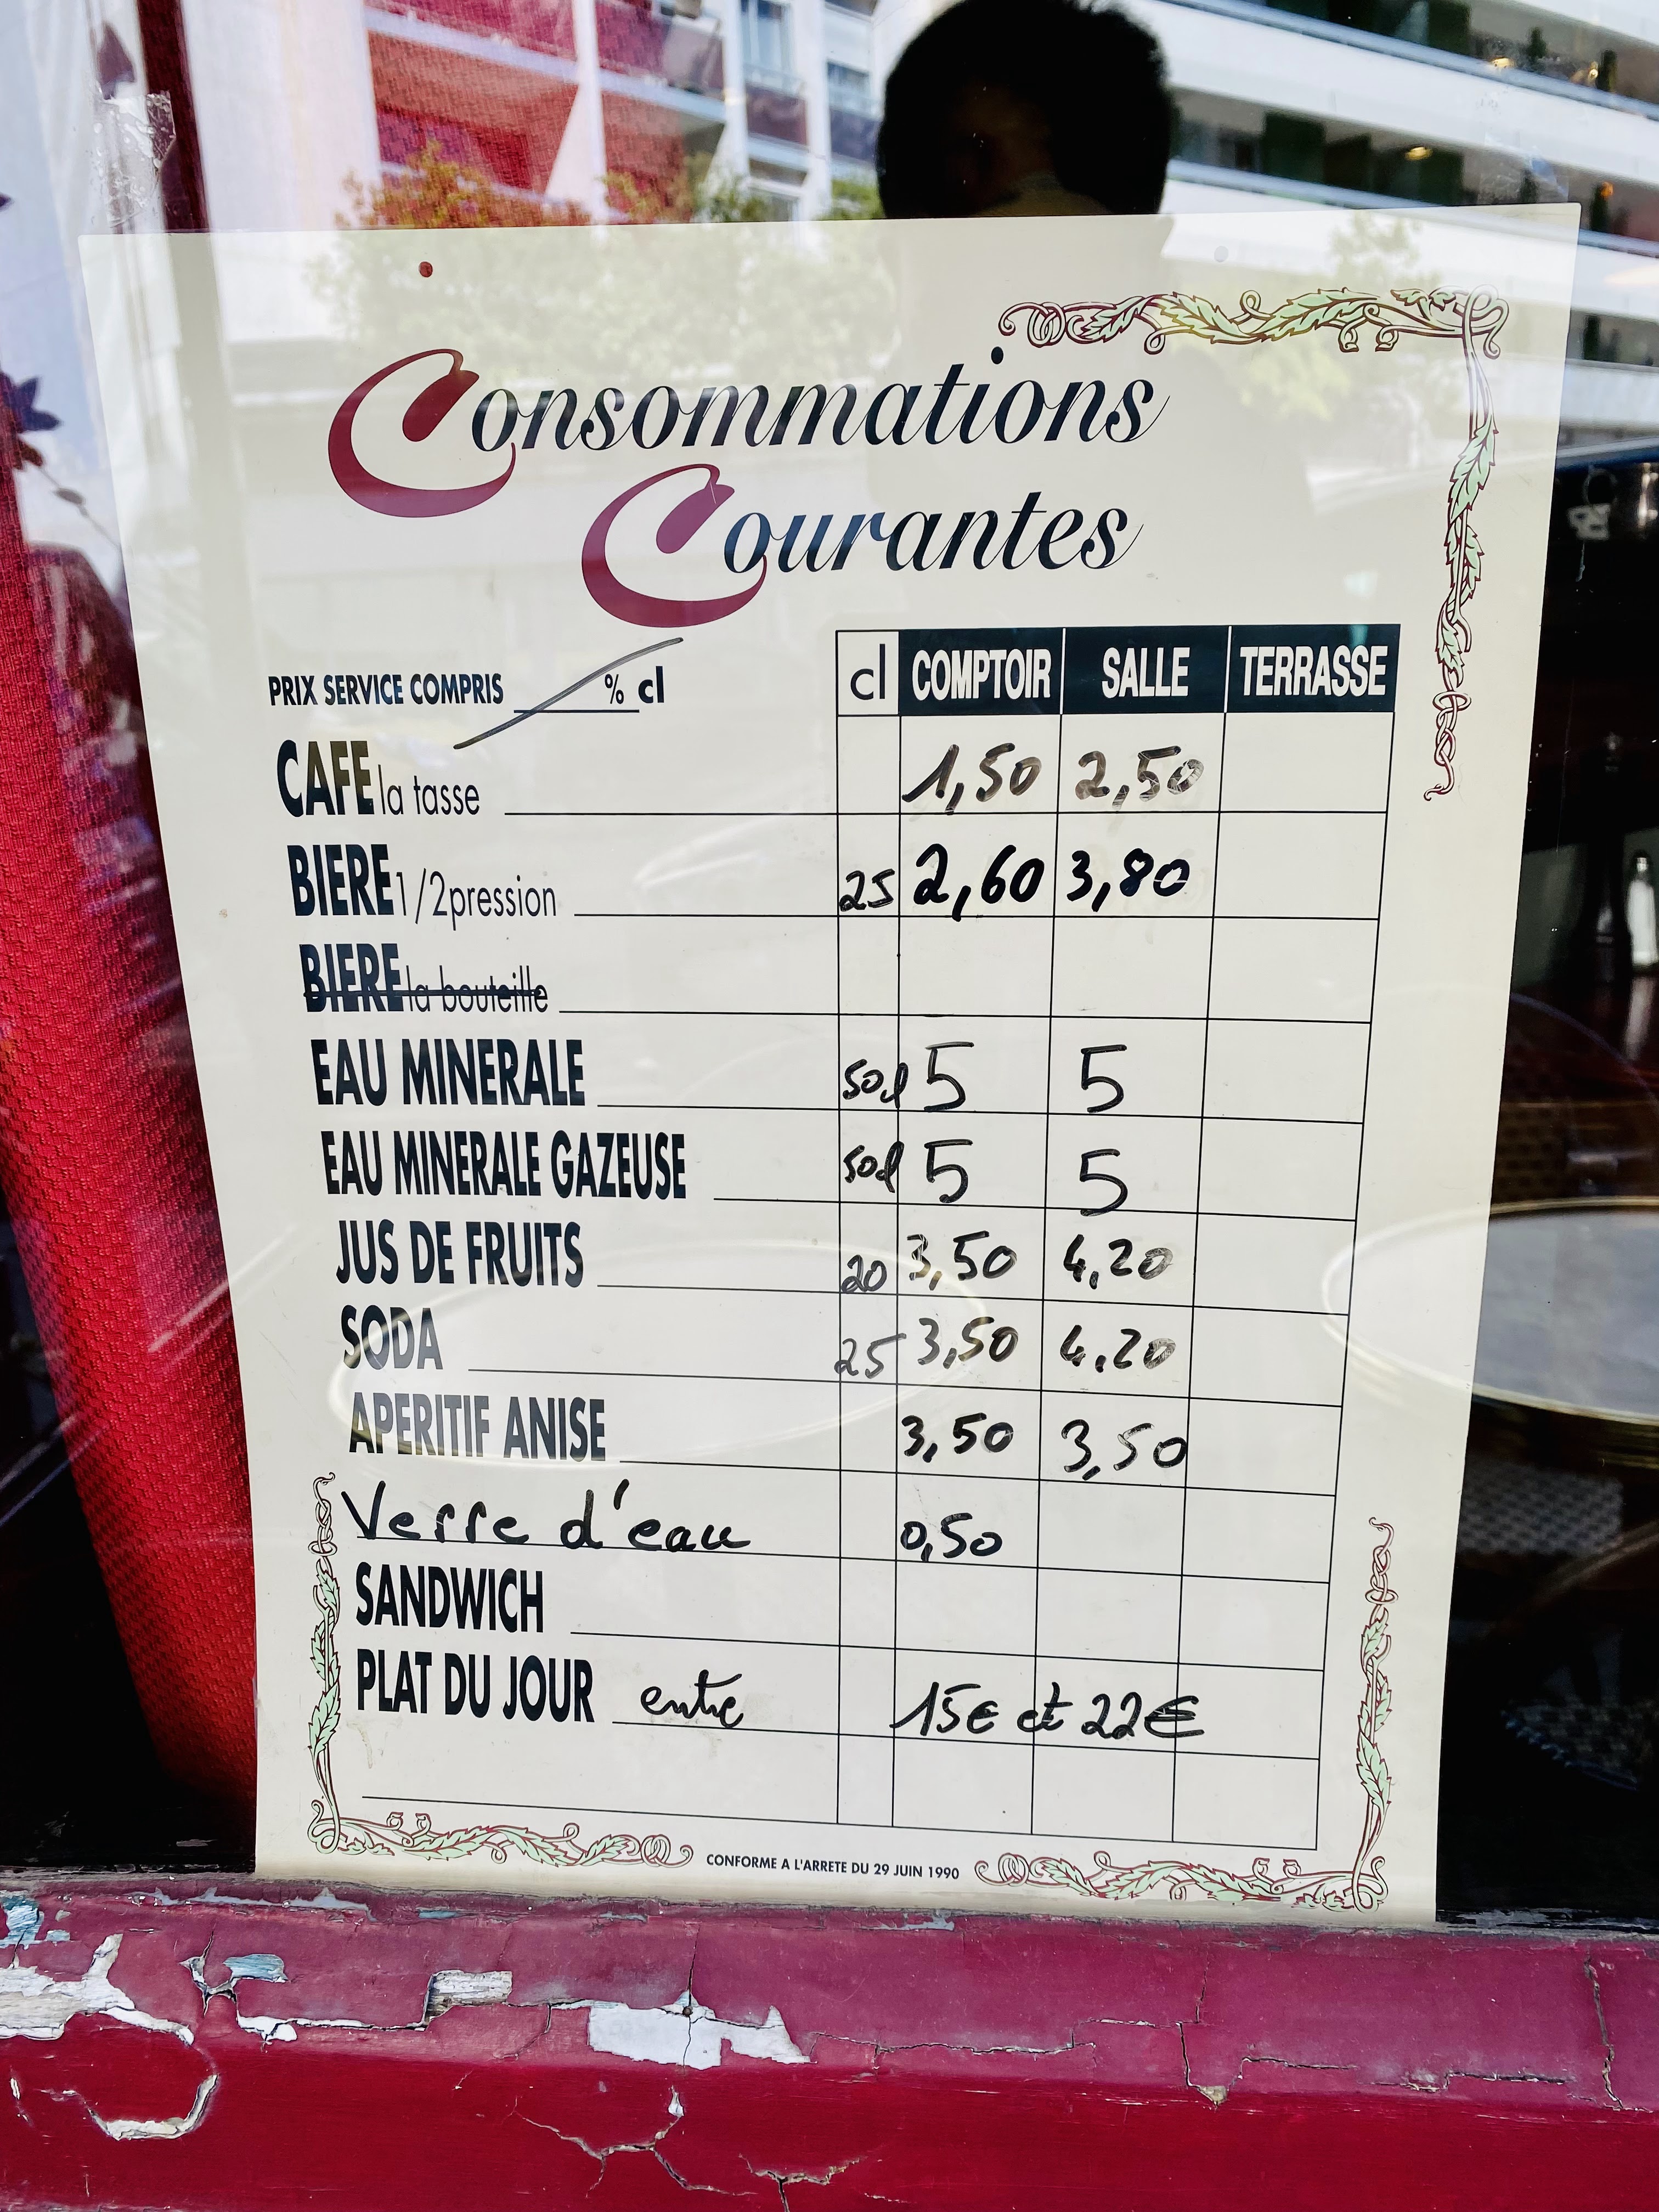 Consommations
Courantes
PRIX SERVICE COMPRIS % cl cl COMPTOIR SALLE TERRASSE
CAFE la tasse 1,50 2,50
BIERE 1/2 pression 25 2,60 3,80
BIERE la bouteille
EAU MINERALE 50cl 5 5
EAU MINERALE GAZEUSE 50cl 5 5
JUS DE FRUITS 20 3,50 4,20
SODA 25 3,50 4,20
APERITIF ANISE 3,50 3,50
Verre d'eau 0,50
SANDWICH
PLAT DU JOUR entre 15€ et 22€
CONFORME A L'ARRETE DU 29 JUIN 1990